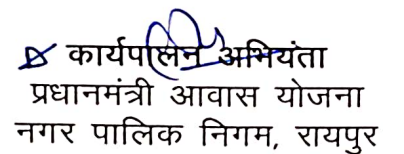 कार्यपालन अभियंता
प्रधानमंत्री आवास योजना
नगर पालिक निगम, रायपुर